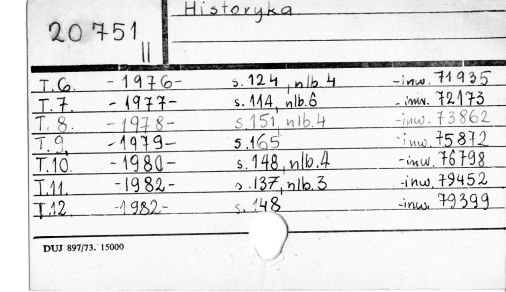 Historyka
20 751
II
T.6. -1976- s. 124, nlb. 4 -inw. 71935
T.7. -1977- s. 114, nlb. 6 -inw. 72173
T.8. -1978- s. 151, nlb. 4 -inw. 73862
T.9. -1979- s. 165 -inw. 75872
T.10. -1980- s. 148, nlb. 4 -inw. 76798
T.11. -1982- s. 137, nlb. 3 -inw. 79452
T.12 -1982- s. 148 -inw. 79399
DUJ 897/73. 15000